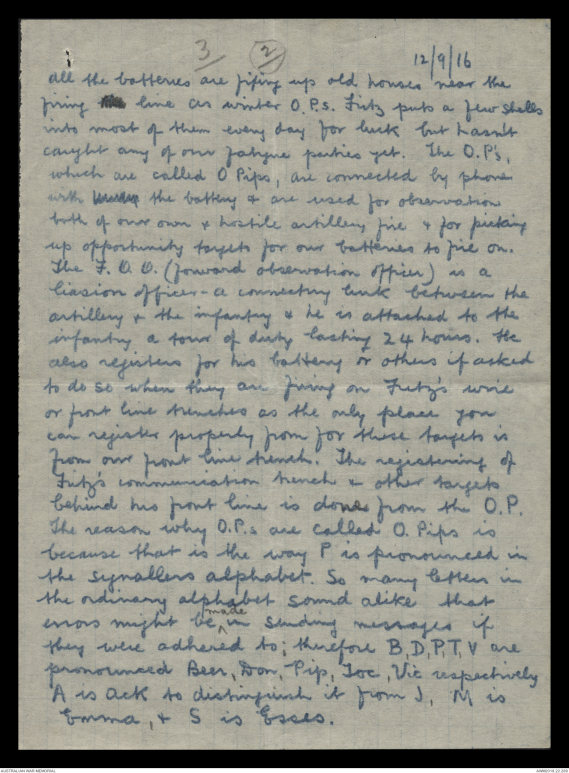 3 2 12/9/16
all the batteries are fixing up old houses near the
firing line as winter O.P.s. Fritz puts a few shells
into most of them every day for luck but hasn't
caught any of our fatigue parties yet. The O.P's,
which are called O Pips, are connected by phone
with the battery & are used for observation
both of our own & hostile artillery fire & for picking
up opportunity targets for our batteries to fire on.
The F.O.O. (forward observation officer) is a
liasion officer - a connecting link between the
artillery & the infantry & he is attached to the
infantry a tour of duty lasting 24 hours. He
also registers for his battery or others if asked
to do so when they are firing on Fritz's wire
or front line trenches as the only place you
can register properly from for these targets is
from our front line trench. The registering of
Fritz's communication trench & other targets
behind his front line is done from the O.P.
The reason why O.P.s are called O. Pips is
because that is the way P is pronounced in
the signallers alphabet. So many letters in
the ordinary alphabet sound alike that
errors might be made in sending messages if
they were adhered to; therefore B,D,P,T,V are
pronounced Beer, Don, Pip, Toc, Vic respectively
A is ack to distinguish it from J, M is
Emma, & S is Esses.
AUSTRALIAN WAR MEMORIAL